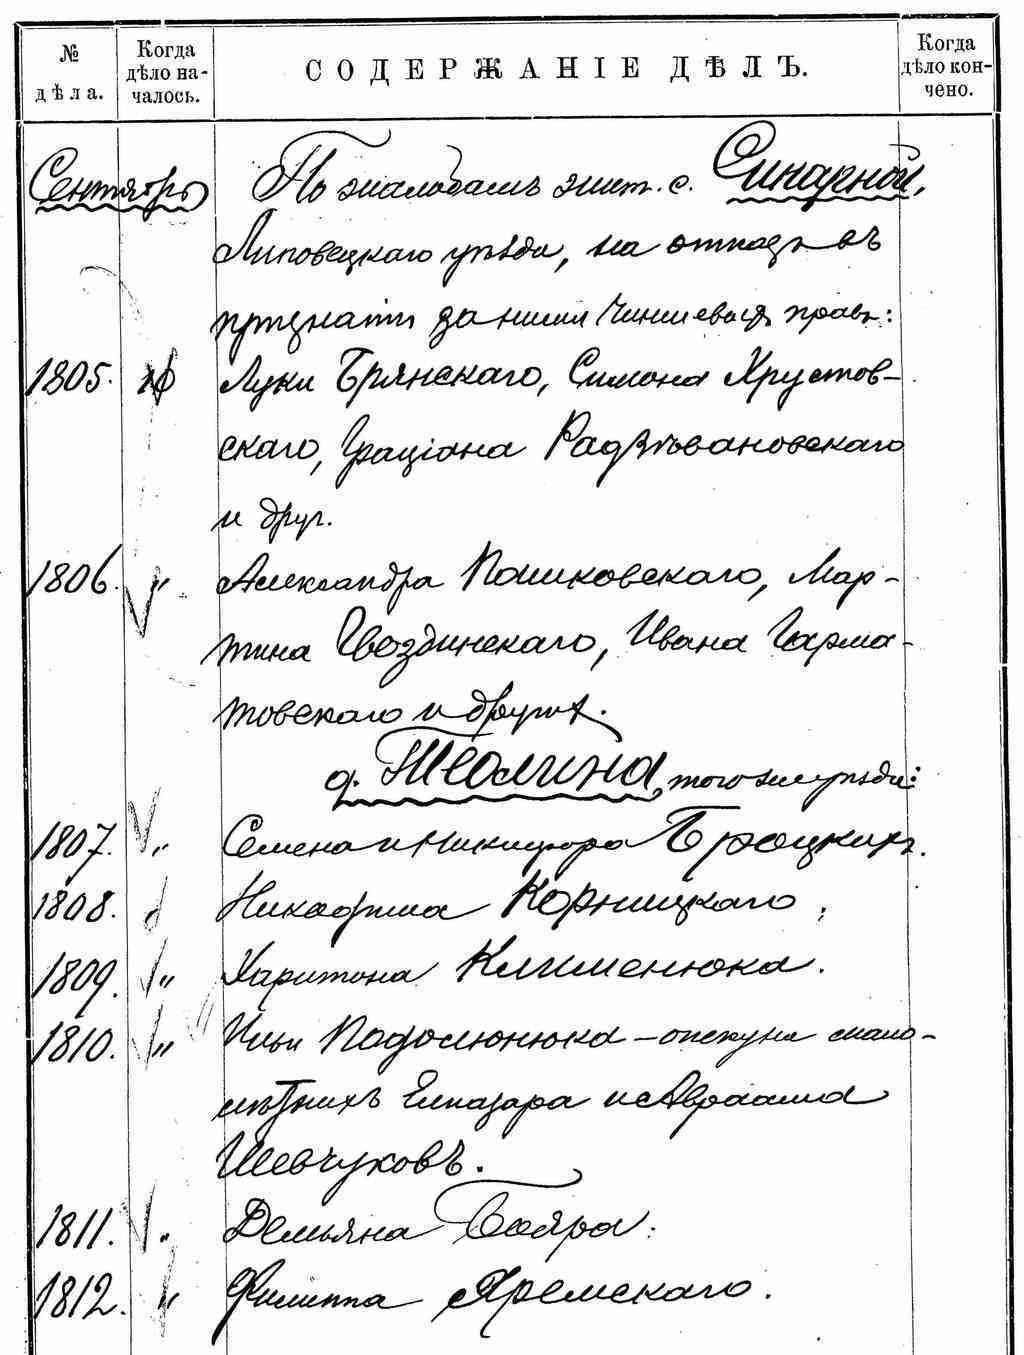 № дѣла.
Когда дѣло началось.
СОДЕРЖАНІЕ ДѢЛЪ.
Когда дѣло кончено.
Сентябрь По жалобамъ жит. с. Синарной,
Липовецкаго уѣзда, на отказъ въ
признаніи за ними чиншевыхъ правъ:
1805. Луки Брянскаго, Симона Хрустов-
скаго, Граціана Радзивановскаго
и друг.
1806. " Александра Пашковскаго, Мар-
тина Гвоздинскаго, Ивана Гарма-
товскаго и другихъ.
д. Теолина, того же уѣзда:
1807. " Семена и Никифора Броцкихъ.
1808. Никифора Корницкаго;
1809. " Харитона Клименюка.
1810. " Ильи Подолюнюка – опекуна мало-
лѣтнихъ Елиазара и Авраама
Шевчуковъ.
1811. " Демьяна Бояра.
1812. " Филиппа Яремскаго.